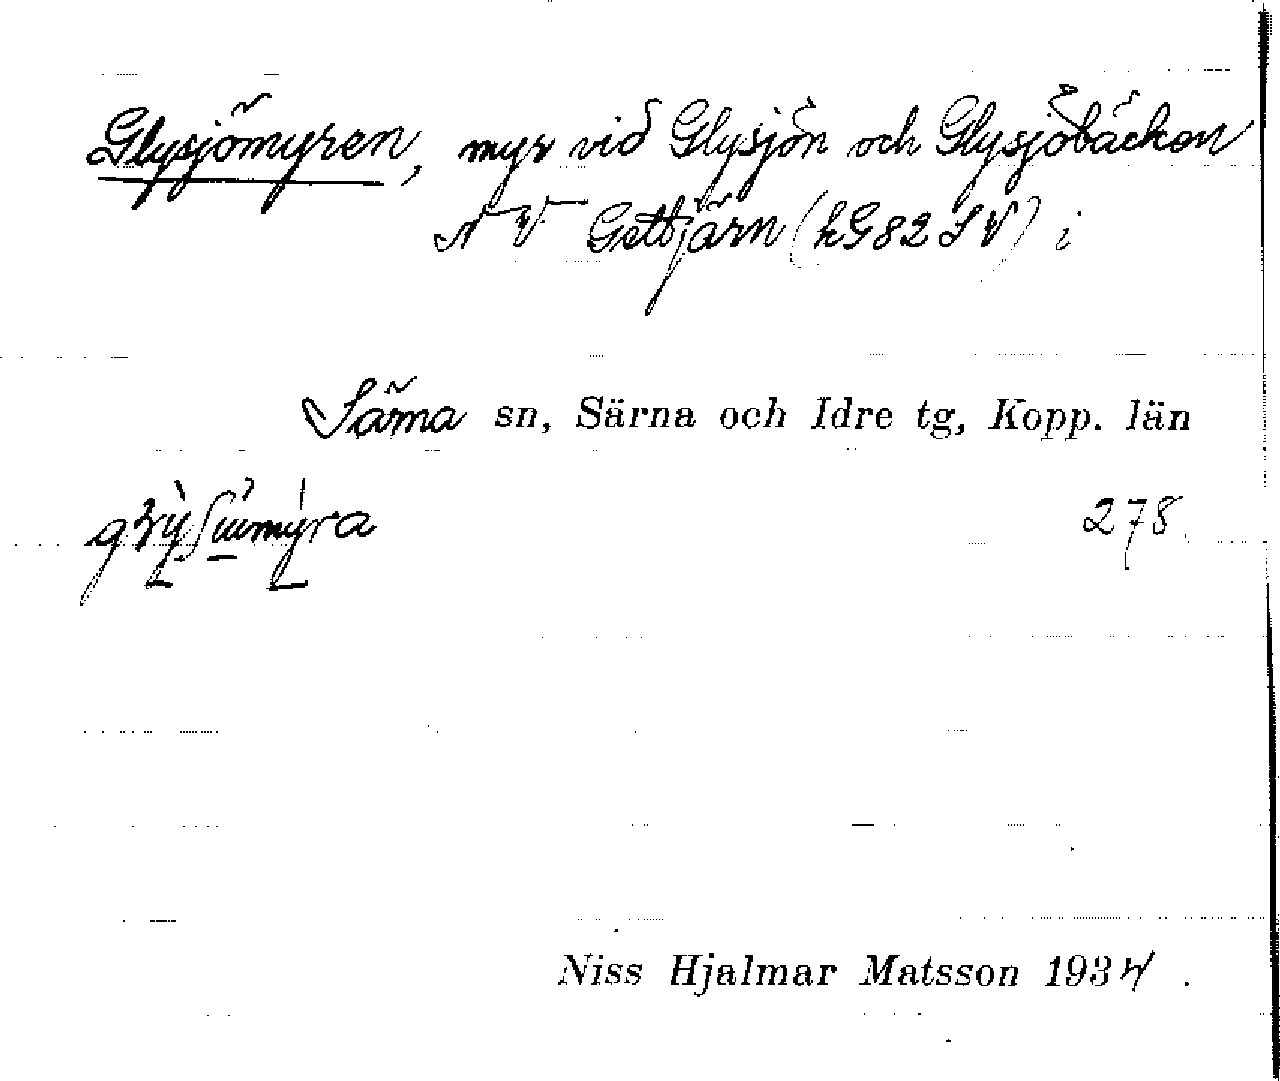 Glysjömyren, myr vid Glysjön och Glysjöbäcken
NV Gettjärn (hG82SV) i
Särna sn, Särna och Idre tg, Kopp. län
278.
Niss Hjalmar Matsson 1934.